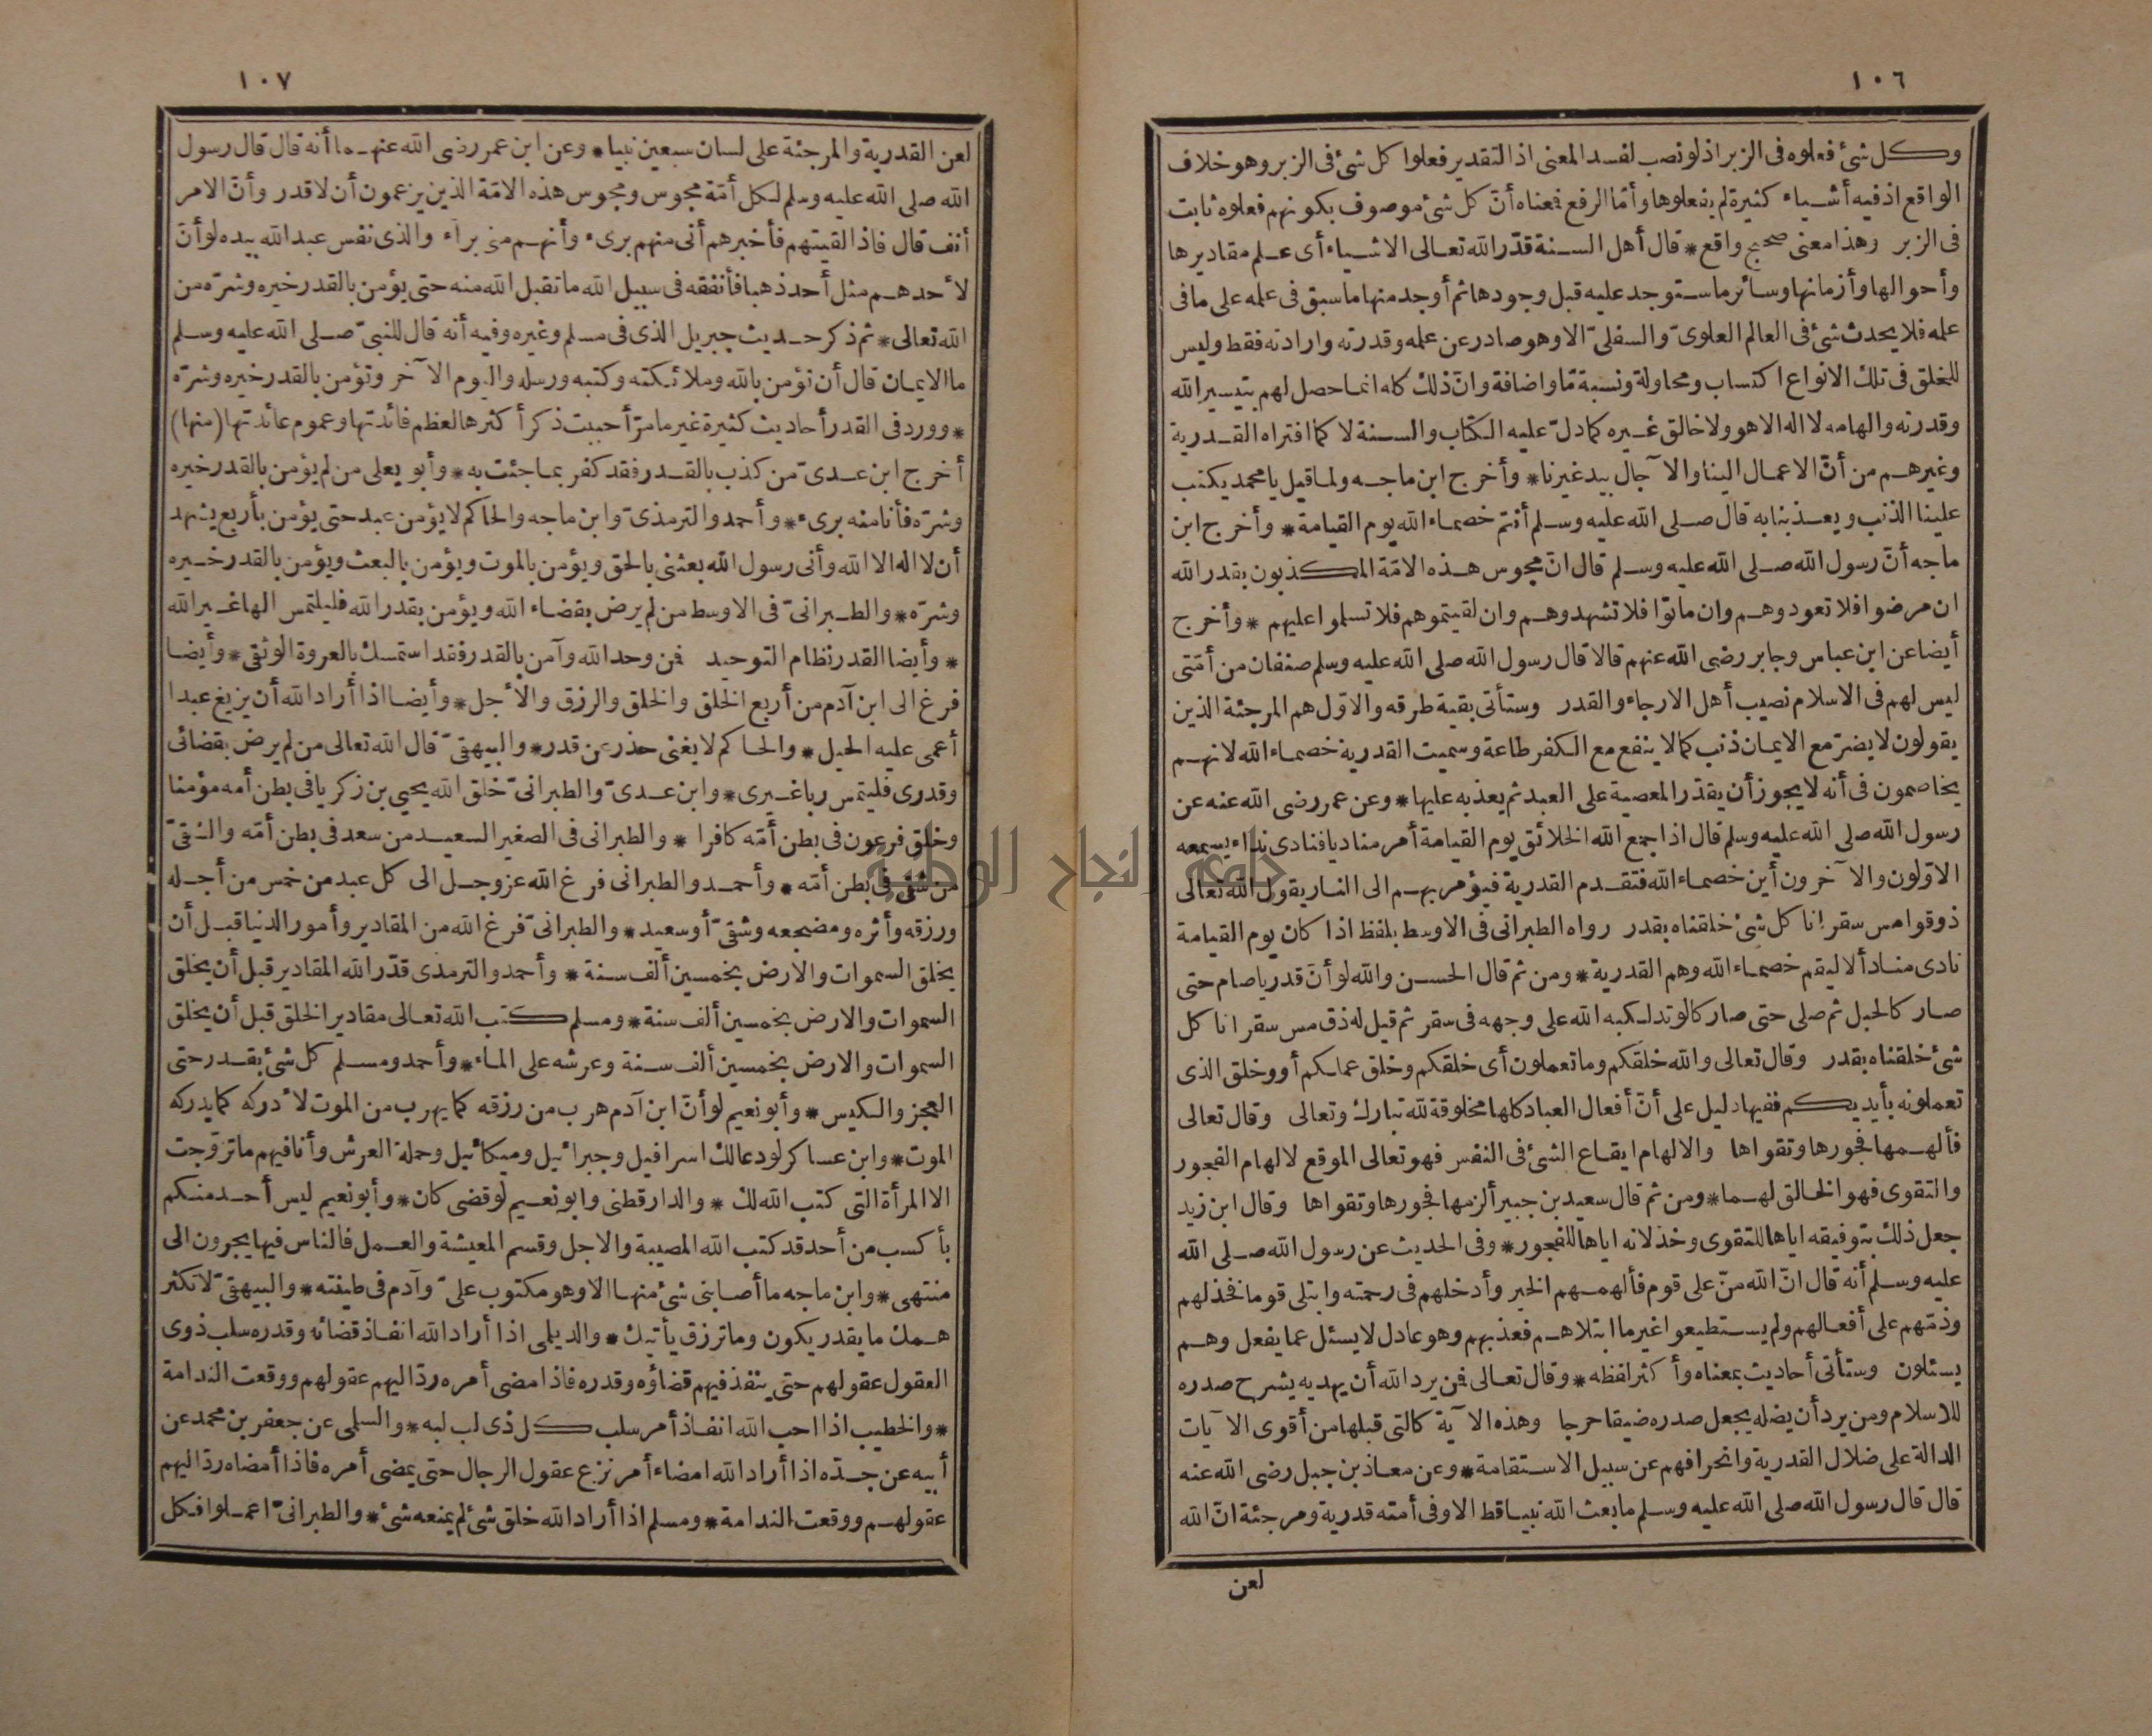 ١٠٦
وكل شئ فعلوه فى الزبر اذ لو نصب لفسد المعنى اذ التقدير فعلوا كل شئ فى الزبر وهو خلاف
الواقع اذ فيه أشياء كثيرة لم يفعلوها وأما الرفع فمعناه أنّ كل شئ موصوف بكونهم فعلوه ثابت
فى الزبر وهذا معنى صحيح واقع * قال أهل السنة قدّر الله تعالى الاشياء أى علم مقاديرها
وأحوالها وأزمانها وسائر ما ستوجد عليه قبل وجودها ثم أوجد منها ما سبق فى علمه على ما فى
علمه فلا يحدث شئ فى العالم العلوىّ والسفلىّ الا وهو صادر عن علمه وقدرته وارادته فقط وليس
للخلق فى تلك الانواع اكتساب ومحاولة ونسبة مّا واضافة وانّ ذلك كله انما حصل لهم بتيسير الله
وقدرته والهامه لا اله الا هو ولا خالق غيره كما دلّ عليه الكتاب والسنة لا كما افتراه القدرية
وغيرهم من أنّ الاعمال الينا والآجال بيد غيرنا * وأخرج ابن ماجه ولما قيل يا محمد يكتب
علينا الذنب ويعذبنا به قال صلى الله عليه وسلم أنتم خصماء الله يوم القيامة * وأخرج ابن
ماجه أنّ رسول الله صلى الله عليه وسلم قال انّ مجوس هذه الامّة المكذبون بقدر الله
ان مرضوا فلا تعودوهم وان ماتوا فلا تشهدوهم وان لقيتموهم فلا تسلموا عليهم * وأخرج
أيضا عن ابن عباس وجابر رضى الله عنهم قالا قال رسول الله صلى الله عليه وسلم صنفان من أمّتى
ليس لهم فى الاسلام نصيب أهل الارجاء والقدر وستأتى بقية طرقه والاوّل هم المرجئة الذين
يقولون لا يضرّ مع الايمان ذنب كما لا ينفع مع الكفر طاعة وسميت القدرية خصماء الله لانهم
يخاصمون فى أنه لا يجوز أن يقدّر المعصية على العبد ثم يعذبه عليها * وعن عمر رضى الله عنه عن
رسول الله صلى الله عليه وسلم قال اذا جمع الله الخلائق يوم القيامة أمر مناديا فنادى نداء يسمعه
الاوّلون والآخرون أين خصماء الله فتقدم القدرية فيؤمر بهم الى النار يقول الله تعالى
ذوقوا مس سقر انا كل شئ خلقناه بقدر رواه الطبرانى فى الاوسط بلفظ اذا كان يوم القيامة
نادى مناد ألا ليقم خصماء الله وهم القدرية * ومن ثم قال الحسن والله لو أنّ قدريا صام حتى
صار كالحبل ثم صلى حتى صار كالوتد لكبه الله على وجهه فى سقر ثم قيل له ذق مس سقر انا كل
شئ خلقناه بقدر وقال تعالى والله خلقكم وما تعملون أى خلقكم وخلق عملكم أو وخلق الذى
تعملونه بأيديكم ففيها دليل على أنّ أفعال العباد كلها مخلوقة لله تبارك وتعالى وقال تعالى
فألهمها فجورها وتقواها والالهام ايقاع الشئ فى النفس فهو تعالى الموقع لالهام الفجور
والتقوى فهو الخالق لهما * ومن ثم قال سعيد بن جبير ألزمها فجورها وتقواها وقال ابن زيد
جعل ذلك بتوفيقه اياها للتقوى وخذلانه اياها للفجور * وفى الحديث عن رسول الله صلى الله
عليه وسلم أنه قال انّ الله منّ على قوم فألهمهم الخير وأدخلهم فى رحمته وابتلى قوما فخذلهم
وذمّهم على أفعالهم ولم يستطيعوا غير ما ابتلاهم فعذبهم وهو عادل لا يسئل عما يفعل وهم
يسئلون وستأتى أحاديث بمعناه وأكثر لفظه * وقال تعالى فمن يرد الله أن يهديه يشرح صدره
للاسلام ومن يرد أن يضله يجعل صدره ضيقا حرجا وهذه الآية كالتى قبلها من أقوى الآيات
الدالة على ضلال القدرية وانحرافهم عن سبيل الاستقامة * وعن معاذ بن جبل رضى الله عنه
قال قال رسول الله صلى الله عليه وسلم ما بعث الله نبيا قط الا وفى أمّته قدرية ومرجئة انّ الله
لعن
١٠٧
لعن القدرية والمرجئة على لسان سبعين نبيا * وعن ابن عمر رضى الله عنهما أنه قال قال رسول
الله صلى الله عليه وسلم لكل أمّة مجوس ومجوس هذه الامّة الذين يزعمون أن لا قدر وأنّ الامر
أنف قال فاذا لقيتهم فأخبرهم أنى منهم برىء وأنهم منى برآء والذى نفس عبد الله بيده لو أنّ
لأحدهم مثل أحد ذهبا فأنفقه فى سبيل الله ما تقبل الله منه حتى يؤمن بالقدر خيره وشرّه من
الله تعالى * ثم ذكر حديث جبريل الذى فى مسلم وغيره وفيه أنه قال للنبىّ صلى الله عليه وسلم
ما الايمان قال أن تؤمن بالله وملائكته وكتبه ورسله واليوم الآخر وتؤمن بالقدر خيره وشرّه
* وورد فى القدر أحاديث كثيرة غير ما مرّ أحببت ذكر أكثرها لعظم فائدتها وعموم عائدتها (منها)
أخرج ابن عدىّ من كذب بالقدر فقد كفر بما جئت به * وأبو يعلى من لم يؤمن بالقدر خيره
وشرّه فأنا منه برىء * وأحمد والترمذىّ وابن ماجه والحاكم لا يؤمن عبد حتى يؤمن بأربع يشهد
أن لا اله الا الله وأنى رسول الله بعثنى بالحق ويؤمن بالموت ويؤمن بالبعث ويؤمن بالقدر خيره
وشرّه * والطبرانىّ فى الاوسط من لم يرض بقضاء الله ويؤمن بقدر الله فليلتمس الها غير الله
* وأيضا القدر نظام التوحيد فمن وحد الله وآمن بالقدر فقد استمسك بالعروة الوثقى * وأيضا
فرغ الى ابن آدم من أربع الخلق والخلق والرزق والأجل * وأيضا اذا أراد الله أن يزيغ عبدا
أعمى عليه الحيل * والحاكم لا يغنى حذر عن قدر * والبيهقىّ قال الله تعالى من لم يرض بقضائى
وقدرى فليلتمس ربا غيرى * وابن عدىّ والطبرانىّ خلق الله يحيى بن زكريا فى بطن أمه مؤمنا
وخلق فرعون فى بطن أمّه كافرا * والطبرانى فى الصغير السعيد من سعد فى بطن أمّه والشقىّ
من شقى فى بطن أمّه * وأحمد والطبرانى فرغ الله عز وجل الى كل عبد من خمس من أجله
ورزقه وأثره ومضجعه وشقىّ أو سعيد * والطبرانىّ فرغ الله من المقادير وأمور الدنيا قبل أن
يخلق السموات والارض بخمسين ألف سنة * وأحمد والترمذى قدّر الله المقادير قبل أن يخلق
السموات والارض بخمسين ألف سنة * ومسلم كتب الله تعالى مقادير الخلق قبل أن يخلق
السموات والارض بخمسين ألف سنة وعرشه على الماء * وأحمد ومسلم كل شئ بقدر حتى
العجز والكيس * وأبو نعيم لو أنّ ابن آدم هرب من رزقه كما يهرب من الموت لأدركه كما يدركه
الموت * وابن عساكر لو دعا لك اسرافيل وجبرائيل وميكائيل وحملة العرش وأنا فيهم ما تزوّجت
الا المرأة التى كتب الله لك * والدارقطنى وابو نعيم لو قضى كان * وأبو نعيم ليس أحد منكم
بأكسب من أحد قد كتب الله المصيبة والاجل وقسم المعيشة والعمل فالناس فيها يجرون الى
منتهى * وابن ماجه ما أصابنى شئ منها الا وهو مكتوب علىّ وآدم فى طينته * والبيهقىّ لا تكثر
همك ما يقدر يكون وما ترزق يأتيك * والديلمى اذا أراد الله انفاذ قضائه وقدره سلب ذوى
العقول عقولهم حتى ينفذ فيهم قضاؤه وقدره فاذا مضى أمره ردّ اليهم عقولهم ووقعت الندامة
* والخطيب اذا احب الله انفاذ أمر سلب كل ذى لب لبه * والسلمى عن جعفر بن محمد عن
أبيه عن جدّه اذا أراد الله امضاء أمر نزع عقول الرجال حتى يمضى أمره فاذا أمضاه ردّ اليهم
عقولهم ووقعت الندامة * ومسلم اذا أراد الله خلق شئ لم يمنعه شئ * والطبرانىّ اعملوا فكل
جامعة النجاح الوطنية